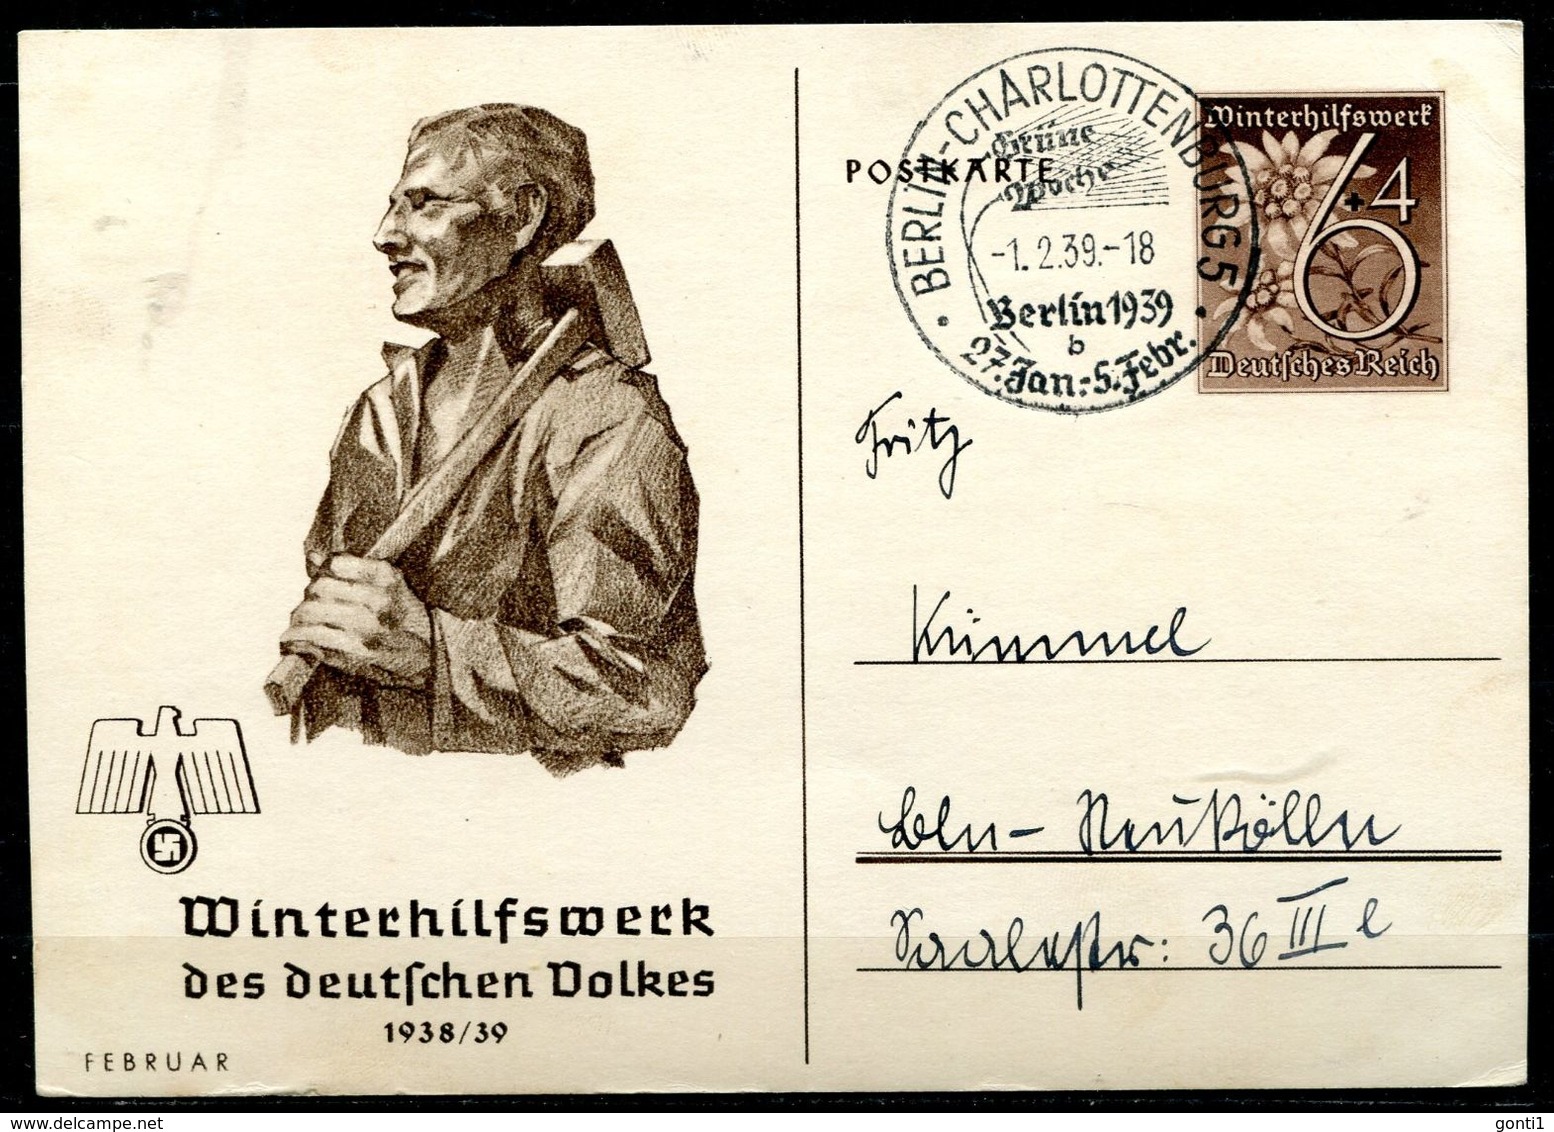 POSTKARTE
BERLIN-CHARLOTTENBURG 5
Grüne
Woche
-1.2.39.-18
Berlin 1939
b
27. Jan.-5. Febr.
Winterhilfswerk
6+4
Deutsches Reich
Fritz
Krimmel
Bln-Neukölln
Saalestr: 36 III l
Winterhilfswerk
des deutschen Volkes
1938/39
FEBRUAR
gonti1